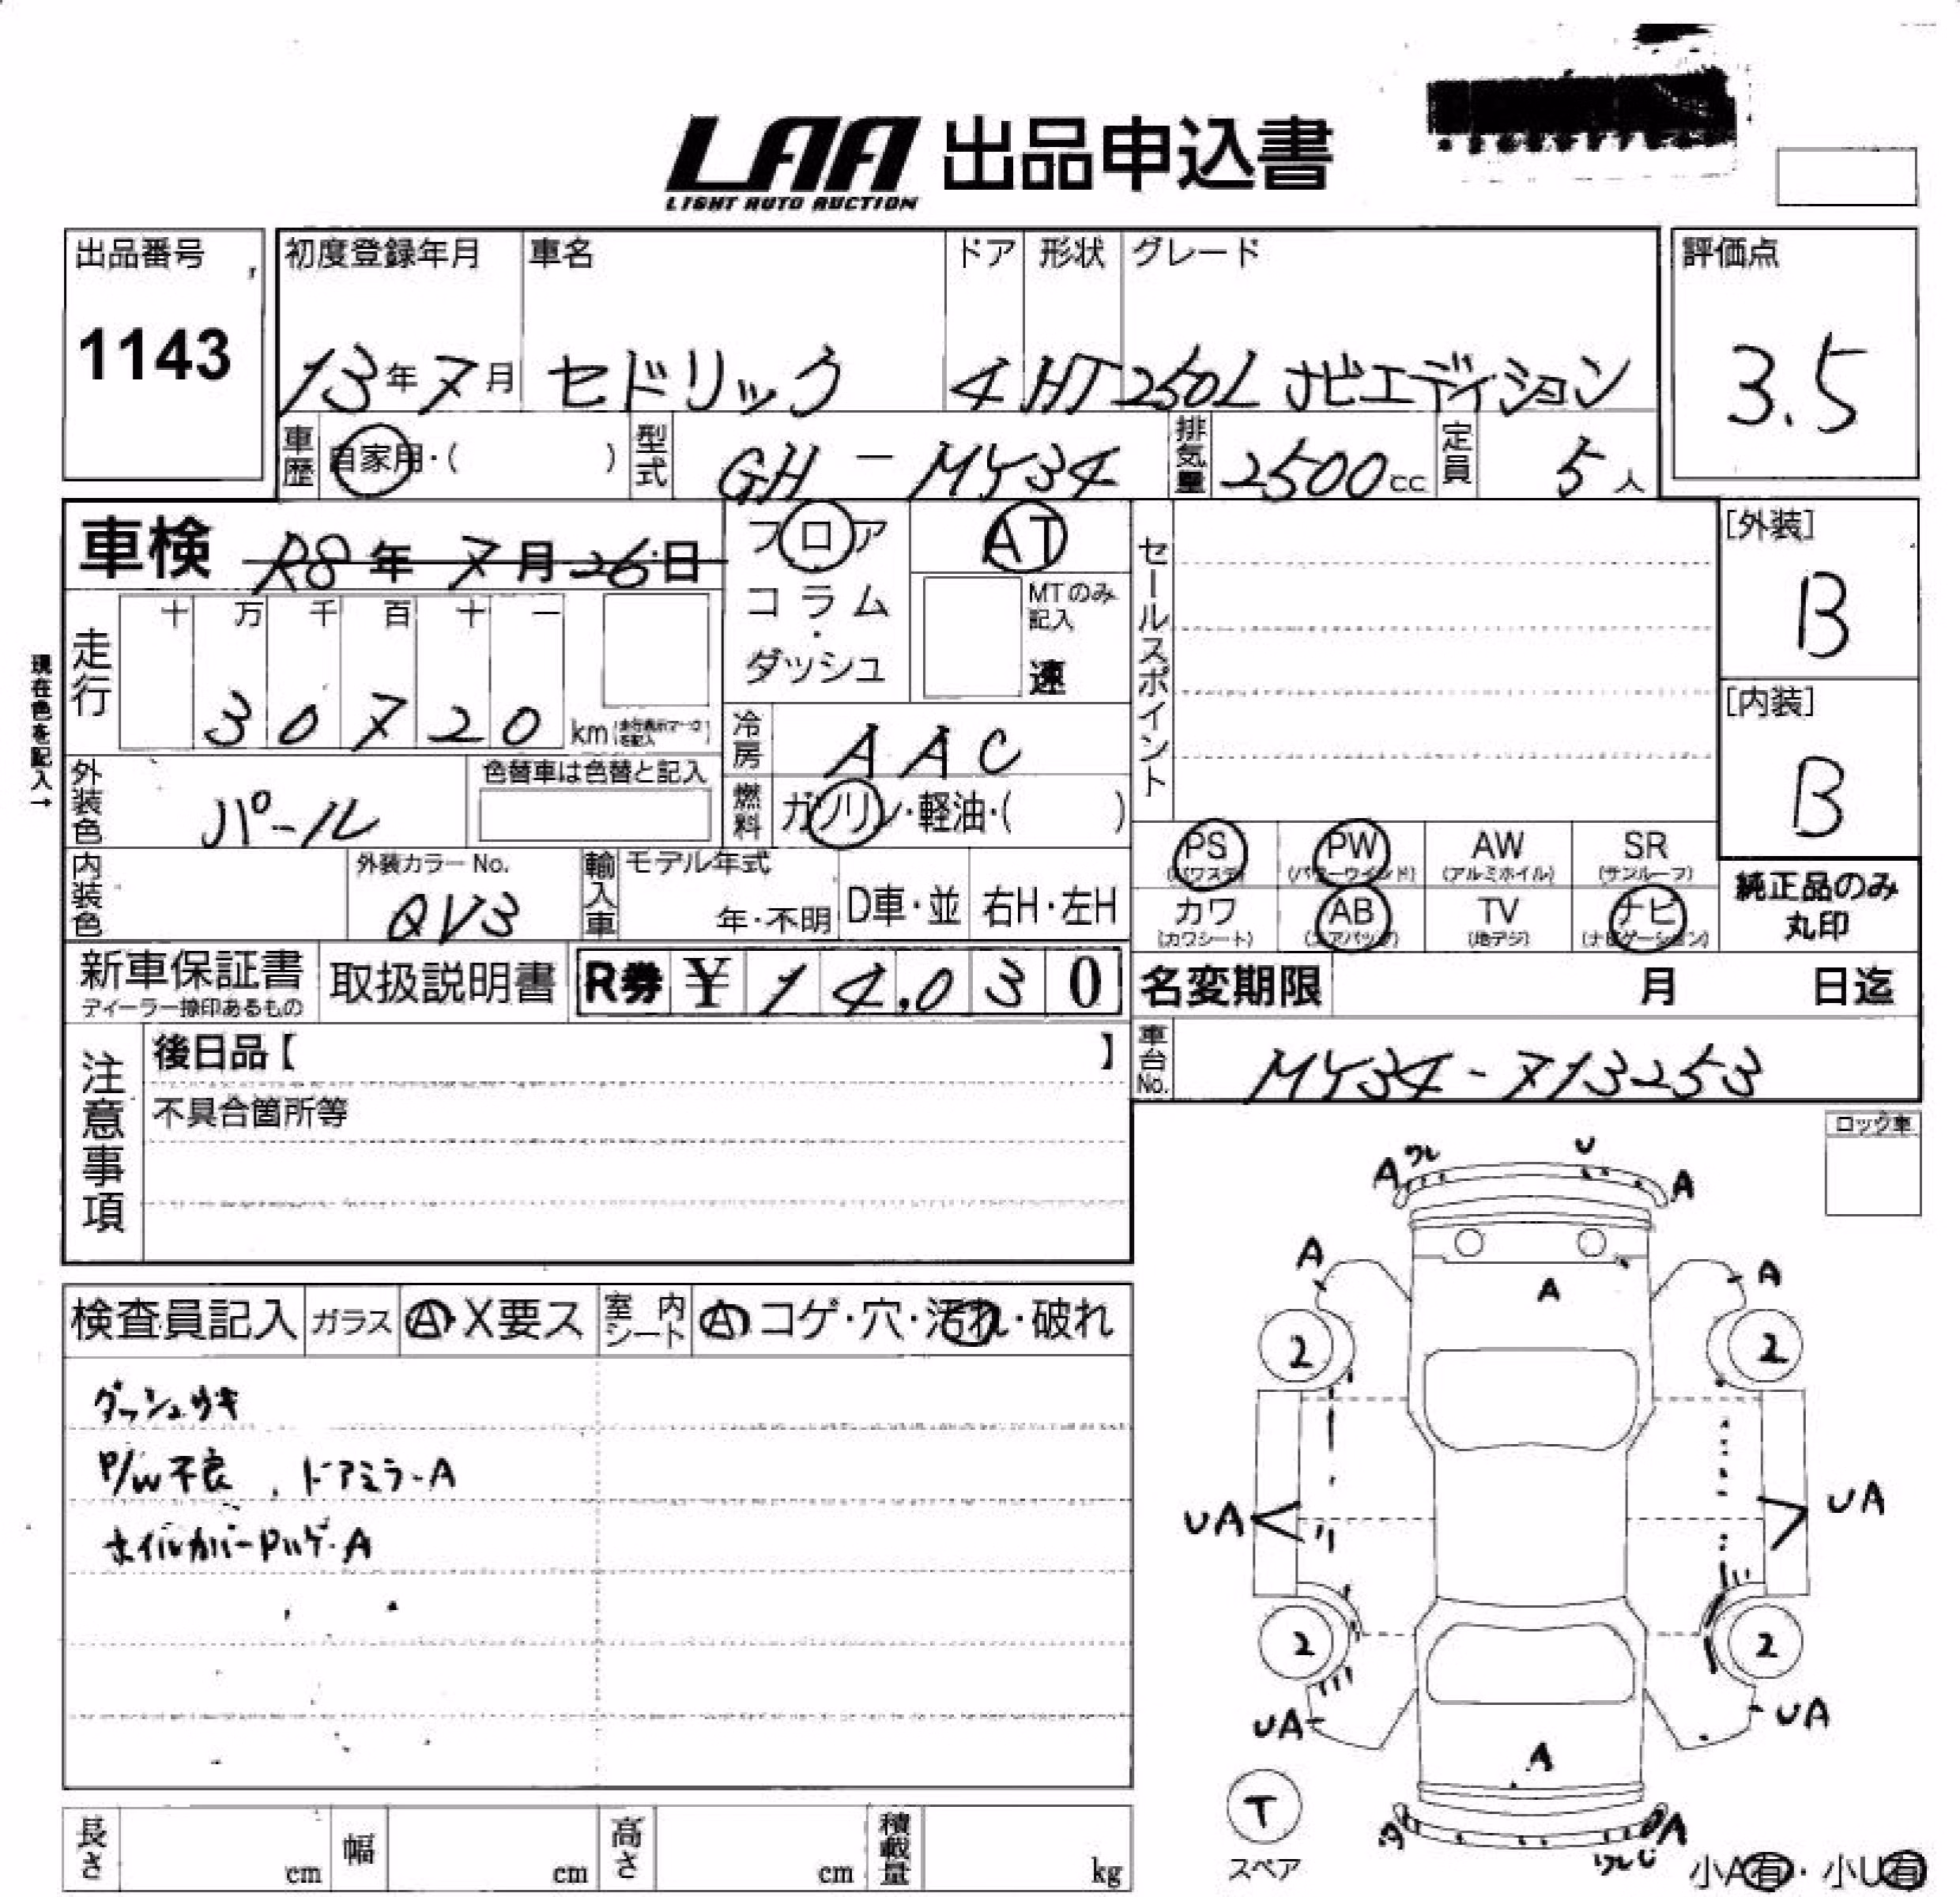 LAA 出品申込書
LIGHT AUTO AUCTION
出品番号 初度登録年月 車名 ドア 形状 グレード 評価点
1143 13年7月 セドリック 4 HT 250L ナビエディション 3.5
車歴 自家用・( ) 型式 GH-MY34 排気量 2500cc 定員 5人
車検 R8年7月26日 フロア AT セールスポイント [外装]
コラム・ MTのみ記入 B
ダッシュ 速
現在色を記入→
走行 十 万 千 百 十 一
30720 km [内装]
冷房 AAC B
外装色 パール 色替車は色替と記入 燃料 ガソリン・軽油・( )
PS PW AW SR
(パワステ) (パワーウインド) (アルミホイル) (サンルーフ)
純正品のみ
丸印
内装色 外装カラーNo. QV3 輸入車 モデル年式 年・不明 D車・並 右H・左H
カワ AB TV ナビ
(カワシート) (エアバッグ) (地デジ) (ナビゲーション)
新車保証書 取扱説明書 R券 ¥ 14,030 名変期限 月 日迄
ディーラー捺印あるもの
車台No. MY34-713253
注意事項 後日品【 】
不具合箇所等
ロック車
検査員記入 ガラス A・X要ス 室内シート A コゲ・穴・汚れ・破れ
ダッシュウキ
P/W不良、ドアミラーA
ホイルカバーハゲ・A
A ワレ U A
A A A
2 2
UA UA
2 2
UA UA
A
T
スペア
A
小A有・小U有
長さ cm 幅 cm 高さ cm 積載量 kg